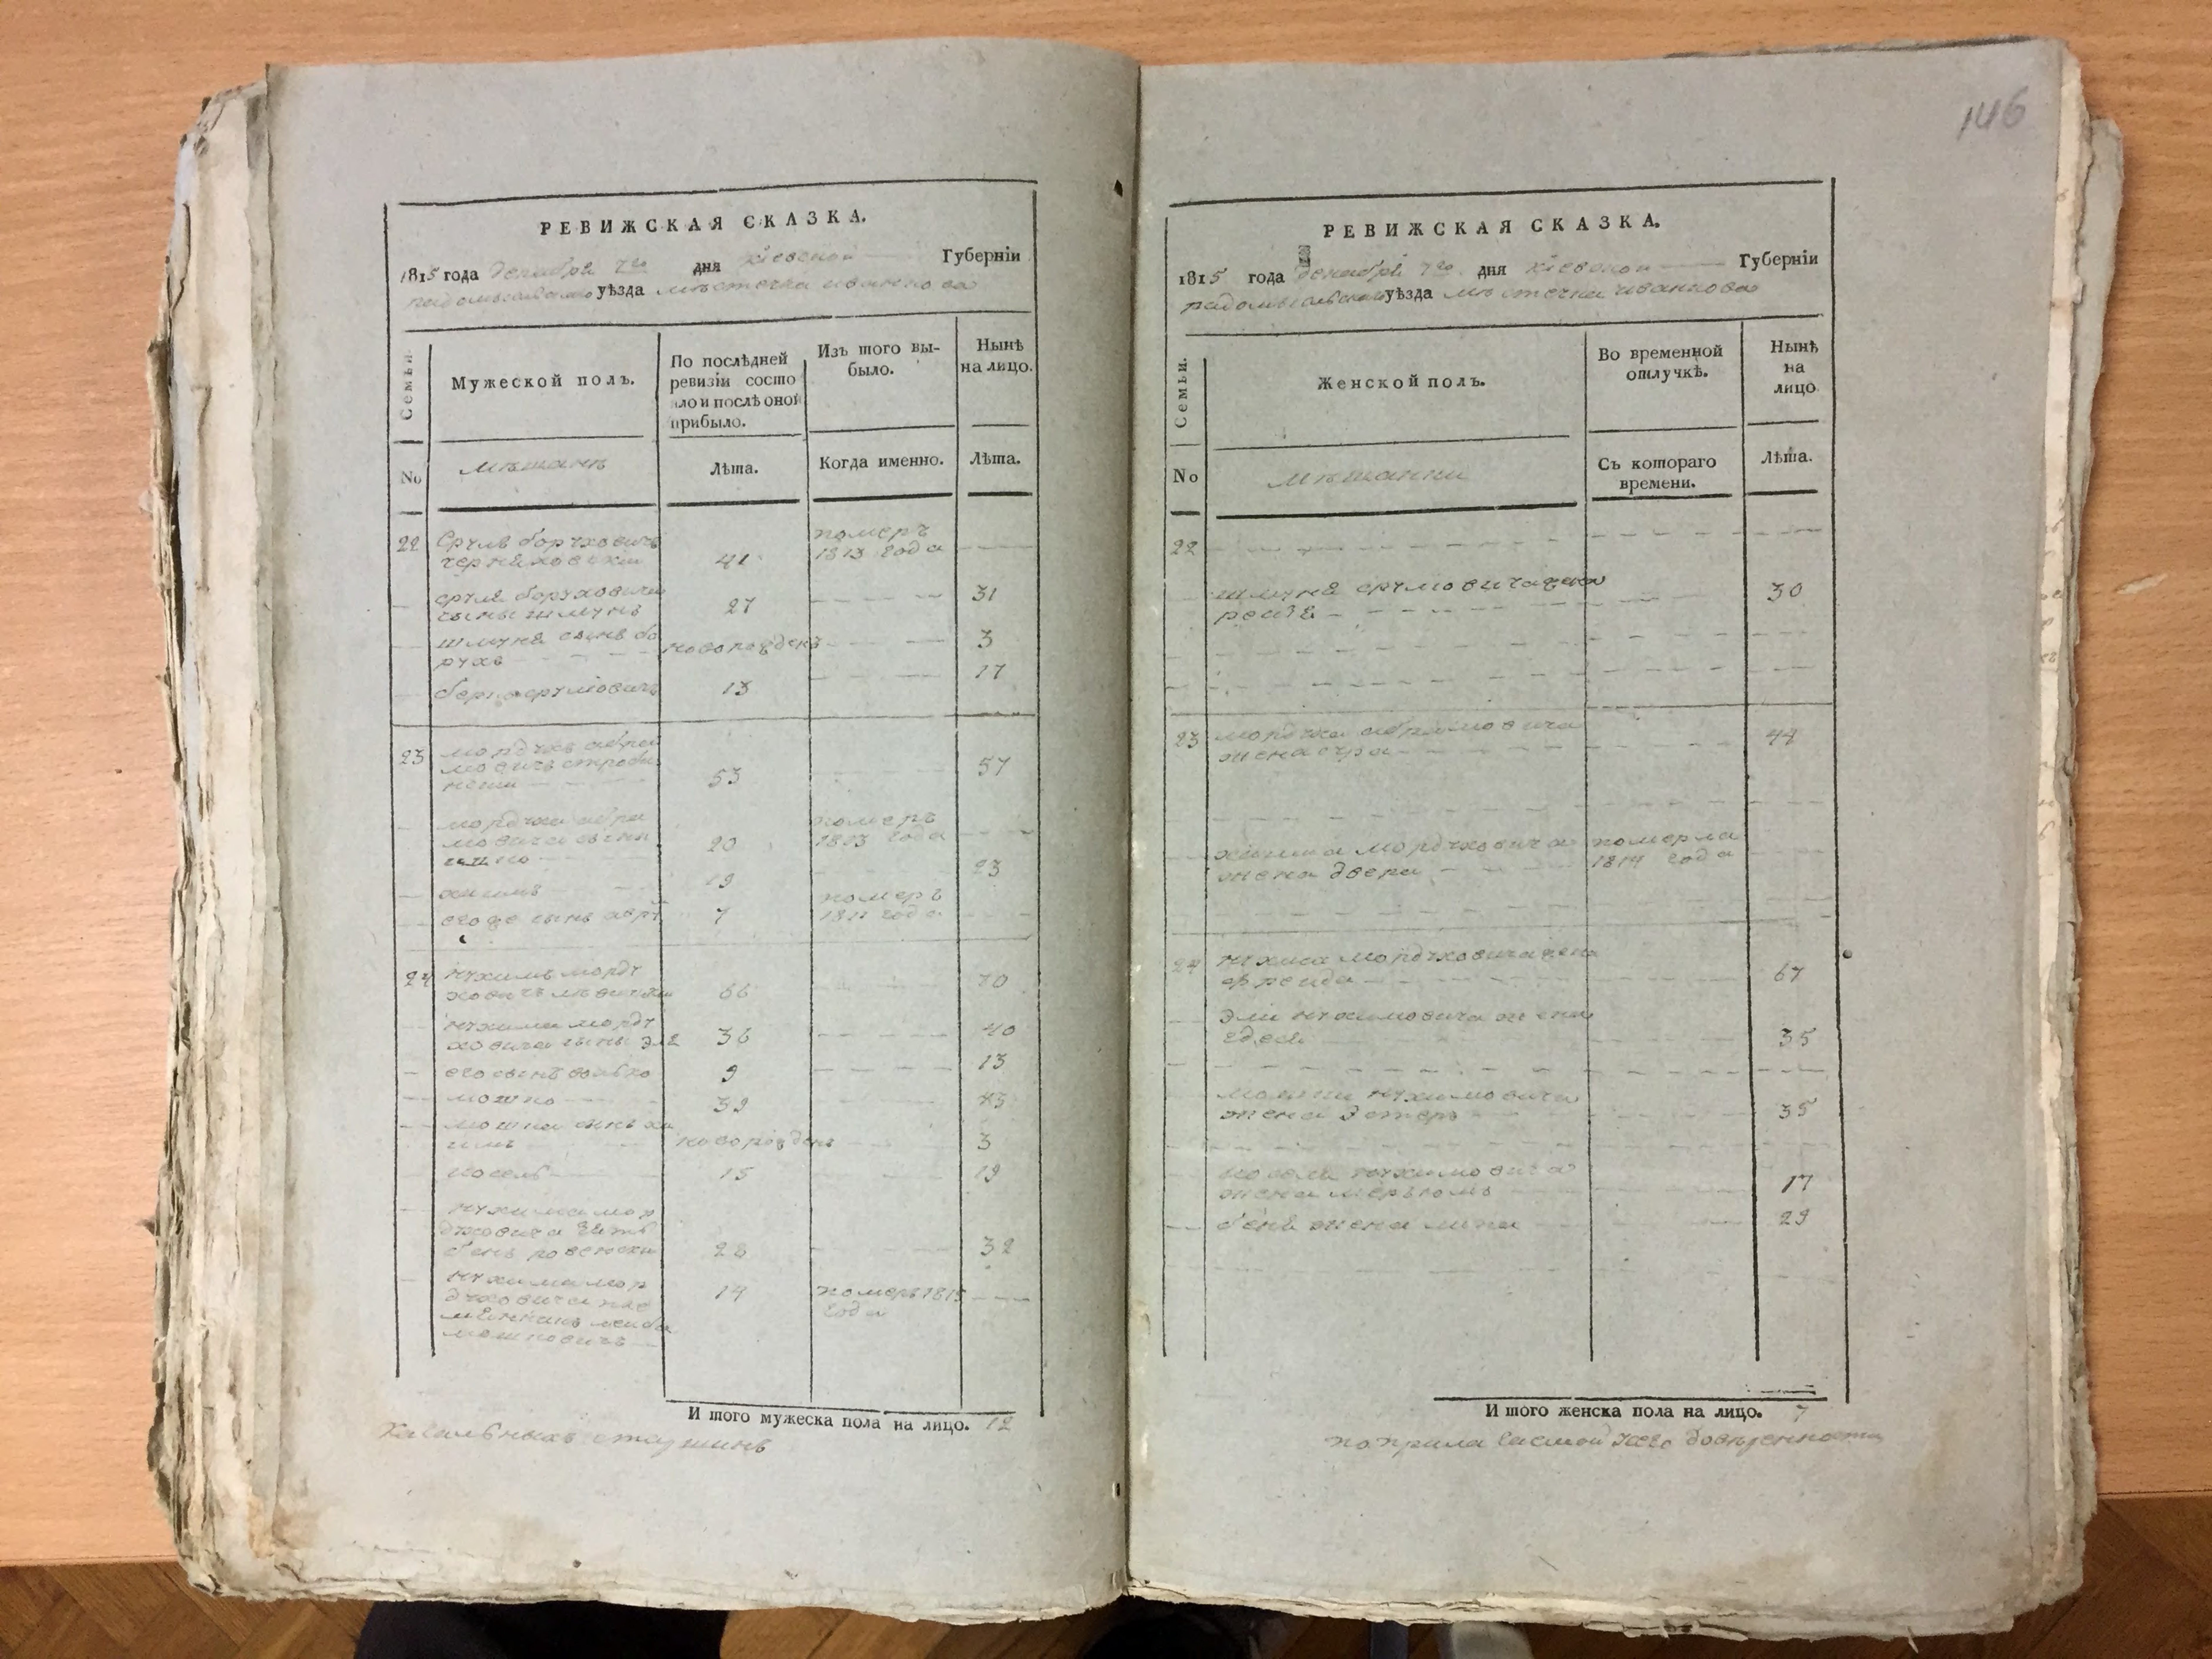 146
РЕВИЖСКАЯ СКАЗКА.
1815 года декабря 7го дня кіевской Губерніи
радомысльского уѣзда мѣстечка иванкова
Семьи.
Мужеской полъ.
По послѣдней ревизіи состояло и послѣ оной прибыло.
Изъ того вы-
было.
Нынѣ
на лицо.
No
мѣщанъ
Лѣта.
Когда именно.
Лѣта.
22 Сруль боруховичъ
черняховскій 41
померъ
1813 года
сруля боруховича
сынъ шмунь 27 31
шмуня сынъ бо
рухъ новорожденъ 3
берко срулiовичъ 13 17
23 мордухъ абра
мовичъ 53 57
мордуха абра
мовича сынъ
20
померъ
1813 года
хаимъ 19 23
егоже сынъ 7
померъ
1811 года
24 нухимъ морду
ховичъ 66 70
нухима морду
ховича сынъ эля 36 40
его сынъ волько 9 13
мошко 39 43
мошка сынъ ха
имъ новорожденъ 3
іосель 15 19
нухима мор
духовича зять
бень 28 32
нухима мор
духовича пле
мянникъ лейба
мошковичъ 14
померъ 1815
года
И того мужеска пола на лицо. 12
РЕВИЖСКАЯ СКАЗКА.
1815 года декабря 7го дня кіевской Губерніи
радомысльского уѣзда мѣстечка иванкова
Семьи.
Женской полъ.
Во временной
отлучкѣ.
Нынѣ
на
лицо.
No
мѣщанки
Съ котораго
времени.
Лѣта.
22
шмуня срулiовича жена
рейзя 30
23 мордуха абрамовича
жена сура 44
хаима мордуховича
жена двера
померла
1814 года
24 нухима мордуховича жена
фрейда 67
эли нухимовича жена
едея 35
мошки нухимовича
жена эстеръ 35
іоселя нухимовича
жена 17
беня жена 29
И того женска пола на лицо. 7